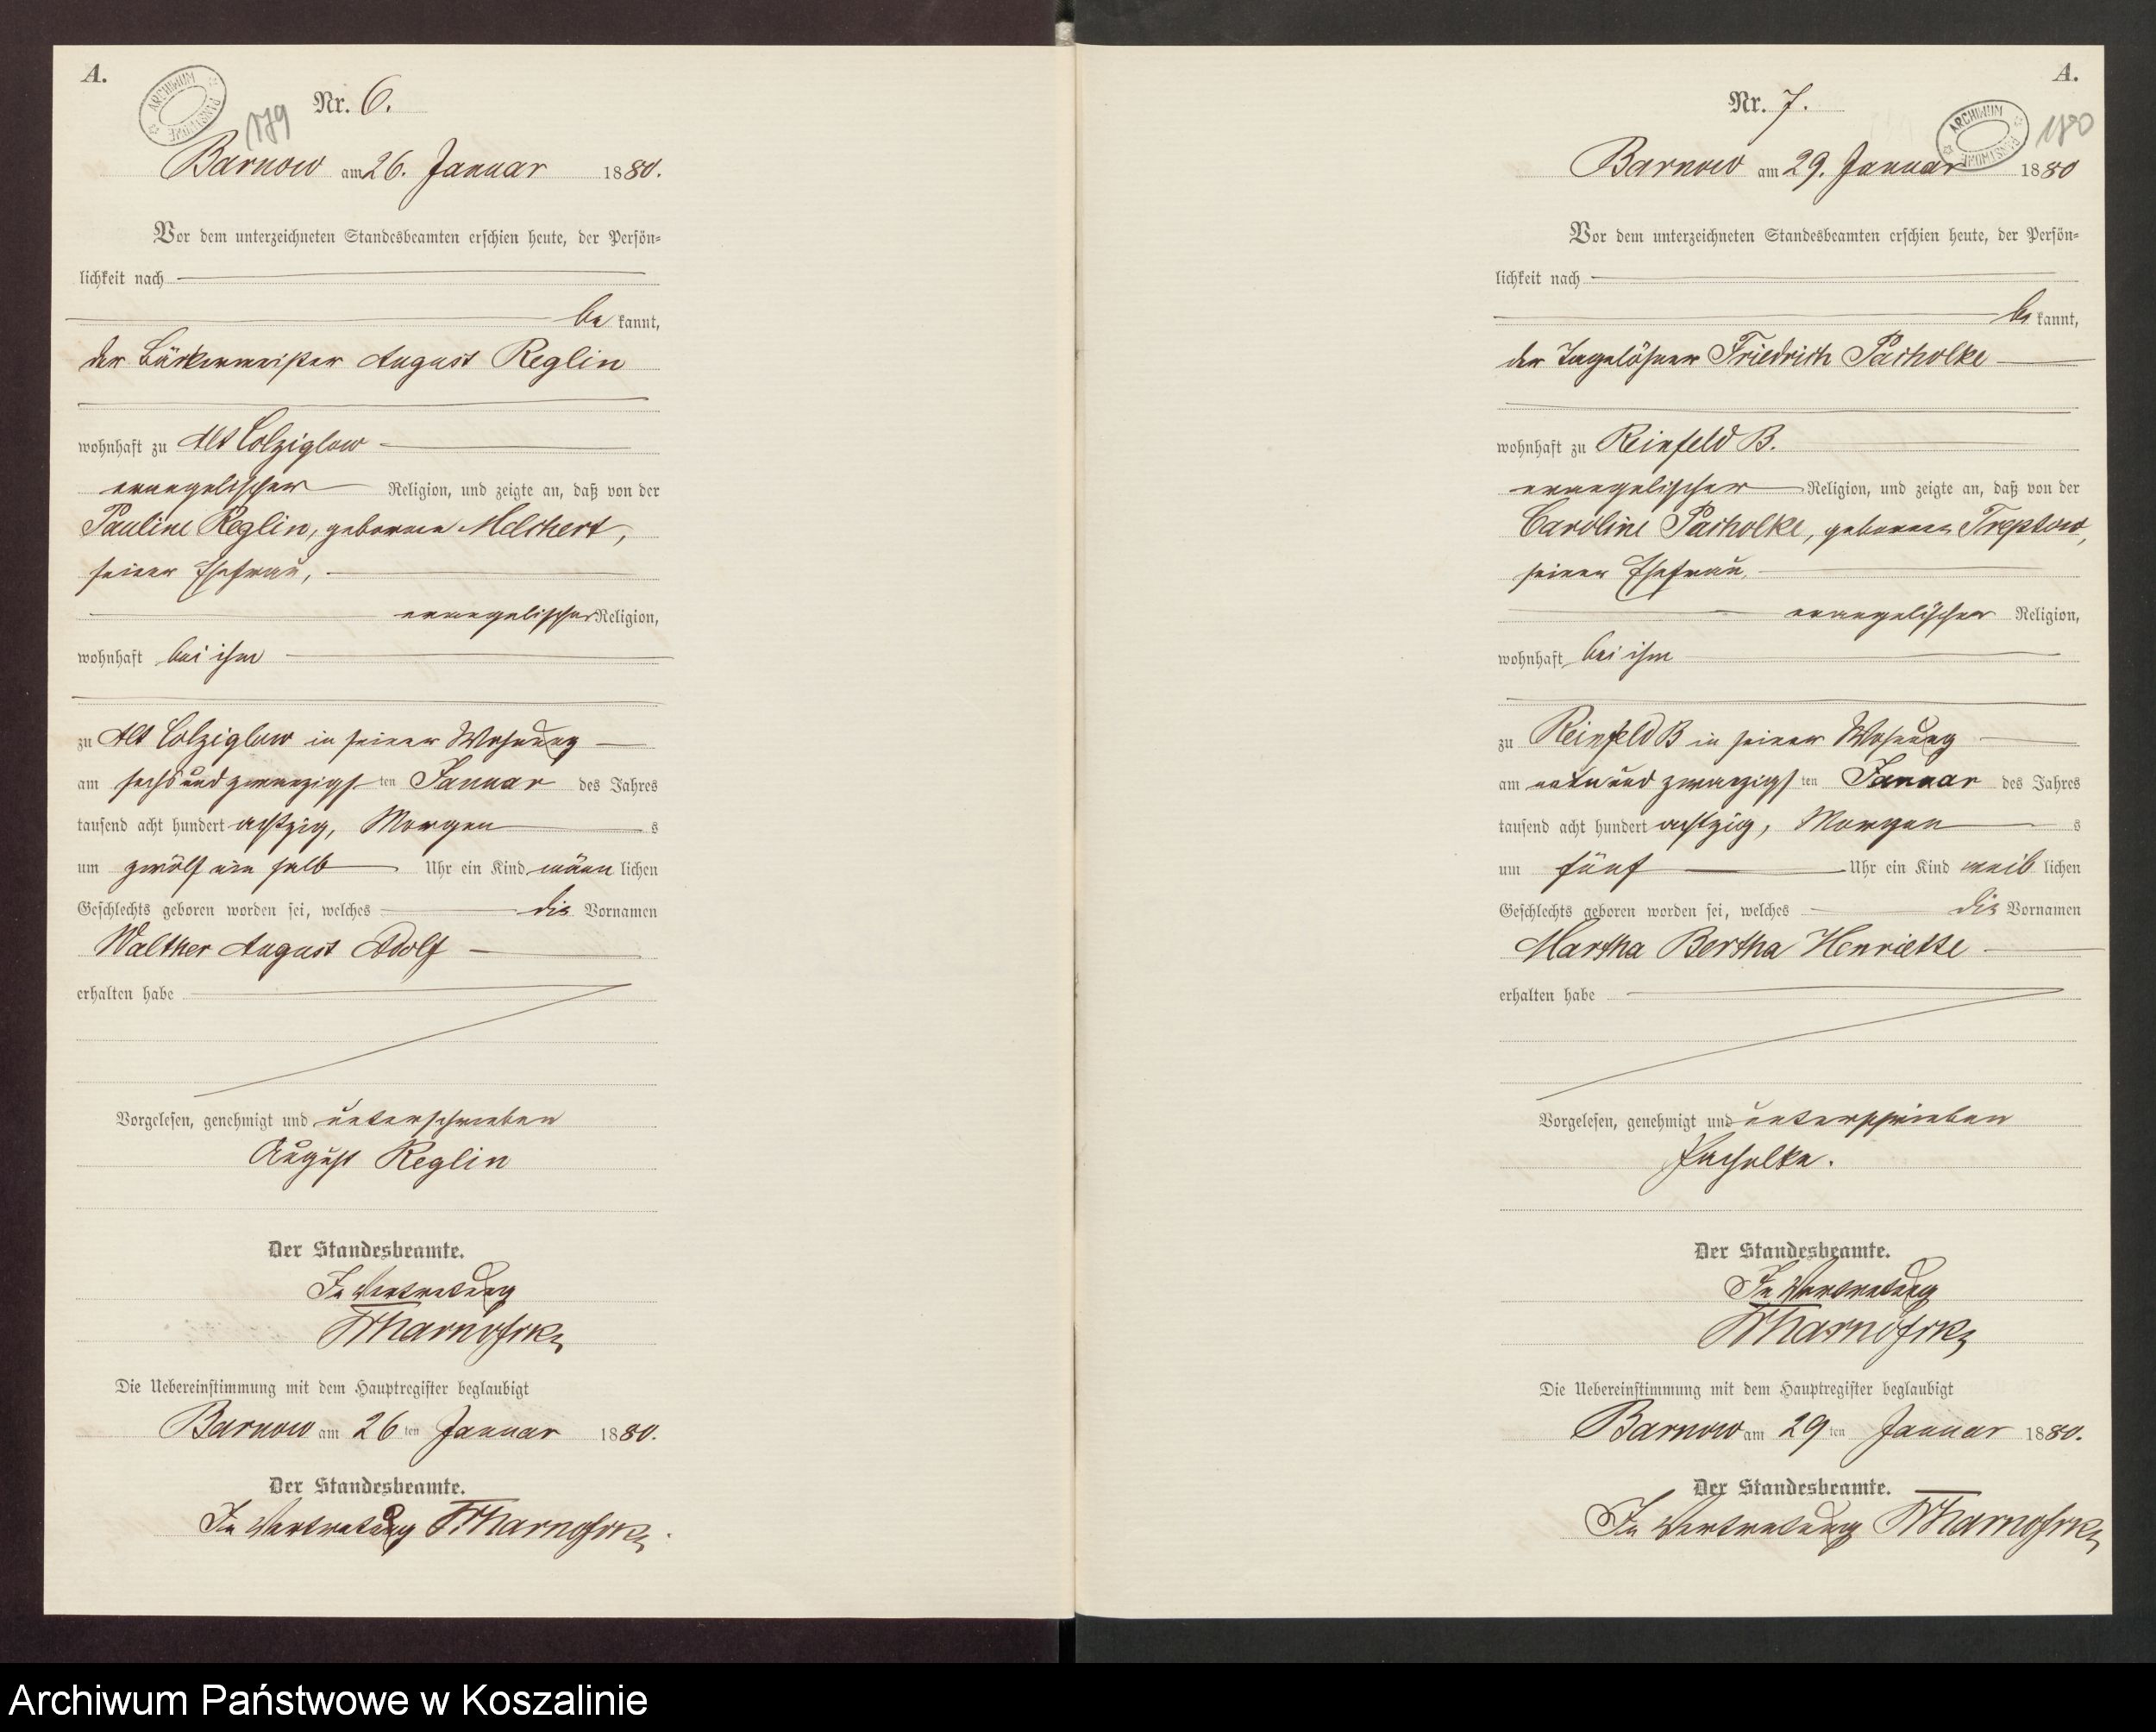 A.
ARCHIWUM PAŃSTWOWE
179
Nr. 6.
Barnow am 26. Januar 1880.
Vor dem unterzeichneten Standesbeamten erschien heute, der Persön=
lichkeit nach
be kannt,
der Bäckermeister August Reglin
wohnhaft zu Alt Colziglow
evangelischer Religion, und zeigte an, daß von der
Pauline Reglin, geborene Melchert,
seiner Ehefrau,
evangelischer Religion,
wohnhaft bei ihm
zu Alt Colziglow in seiner Wohnung
am sechs und zwanzigsten Januar des Jahres
tausend acht hundert achtzig, Morgens
um zwölf ein halb Uhr ein Kind männlichen
Geschlechts geboren worden sei, welches die Vornamen
Walther August Adolf
erhalten habe
Vorgelesen, genehmigt und unterschrieben
August Reglin
Der Standesbeamte.
In Vertretung
Die Uebereinstimmung mit dem Hauptregister beglaubigt
Barnow am 26ten Januar 1880.
Der Standesbeamte.
In Vertretung
A.
ARCHIWUM PAŃSTWOWE
180
Nr. 7.
Barnow am 29. Januar 1880
Vor dem unterzeichneten Standesbeamten erschien heute, der Persön=
lichkeit nach
be kannt,
der Tagelöhner Friedrich Pacholke
wohnhaft zu Reinfeld B.
evangelischer Religion, und zeigte an, daß von der
Caroline Pacholke, geborene Treptow,
seiner Ehefrau,
evangelischer Religion,
wohnhaft bei ihm
zu Reinfeld B in seiner Wohnung
am und zwanzigsten Januar des Jahres
tausend acht hundert achtzig, Morgens
um fünf Uhr ein Kind weiblichen
Geschlechts geboren worden sei, welches die Vornamen
Martha Bertha Henriette
erhalten habe
Vorgelesen, genehmigt und unterschrieben
Pacholke.
Der Standesbeamte.
In Vertretung
Die Uebereinstimmung mit dem Hauptregister beglaubigt
Barnow am 29ten Januar 1880.
Der Standesbeamte.
In Vertretung
Archiwum Państwowe w Koszalinie